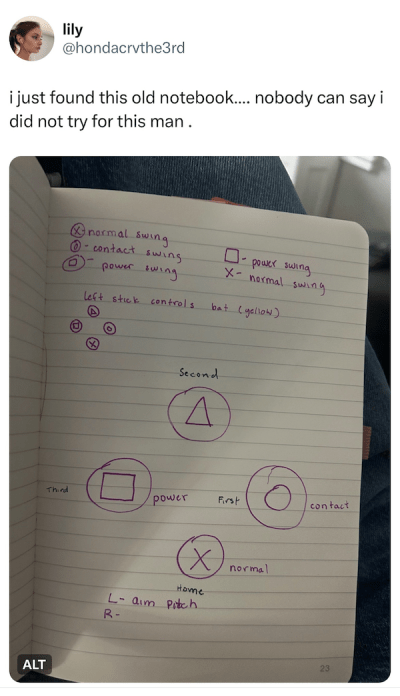 lily
@hondacrvthe3rd
i just found this old notebook.... nobody can say i
did not try for this man .
X - normal swing
O - contact swing
□ - power swing
□ - power swing
X - normal swing
Left stick controls bat (yellow)
△
□ O
X
Second
△
Third □ power First O contact
X normal
Home
L - aim pitch
R -
23
ALT